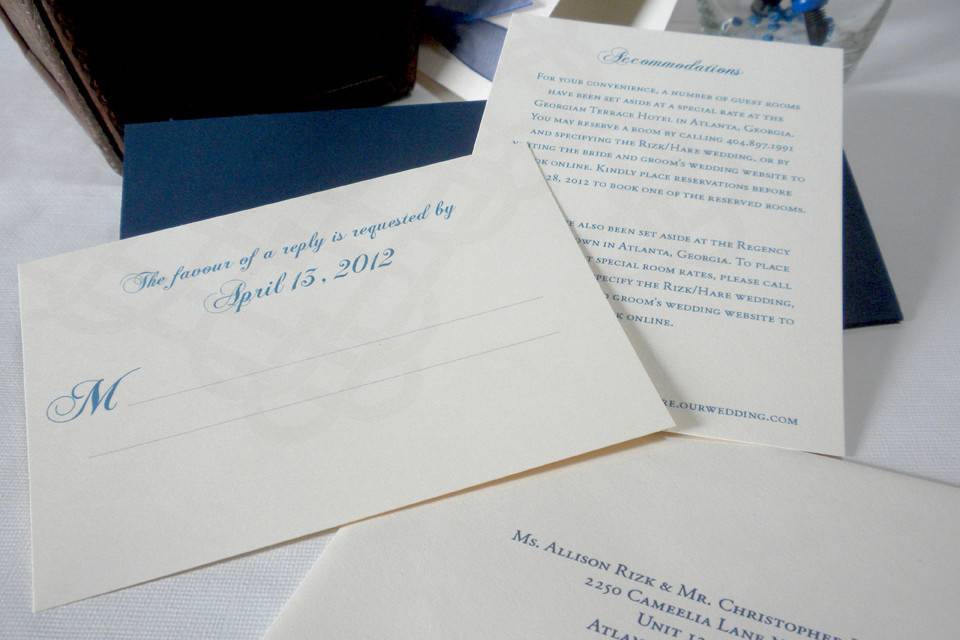 Accommodations
For your convenience, a number of guest rooms
have been set aside at a special rate at the
Georgian Terrace Hotel in Atlanta, Georgia.
You may reserve a room by calling 404.897.1991
and specifying the Rizk/Hare wedding, or by
the bride and groom's wedding website to
online. Kindly place reservations before
28, 2012 to book one of the reserved rooms.
also been set aside at the Regency
in Atlanta, Georgia. To place
special room rates, please call
specify the Rizk/Hare wedding,
groom's wedding website to
online.
re.ourwedding.com
The favour of a reply is requested by
April 13, 2012
M
Ms. Allison Rizk & Mr. Christopher
2250 Cameelia Lane
Unit